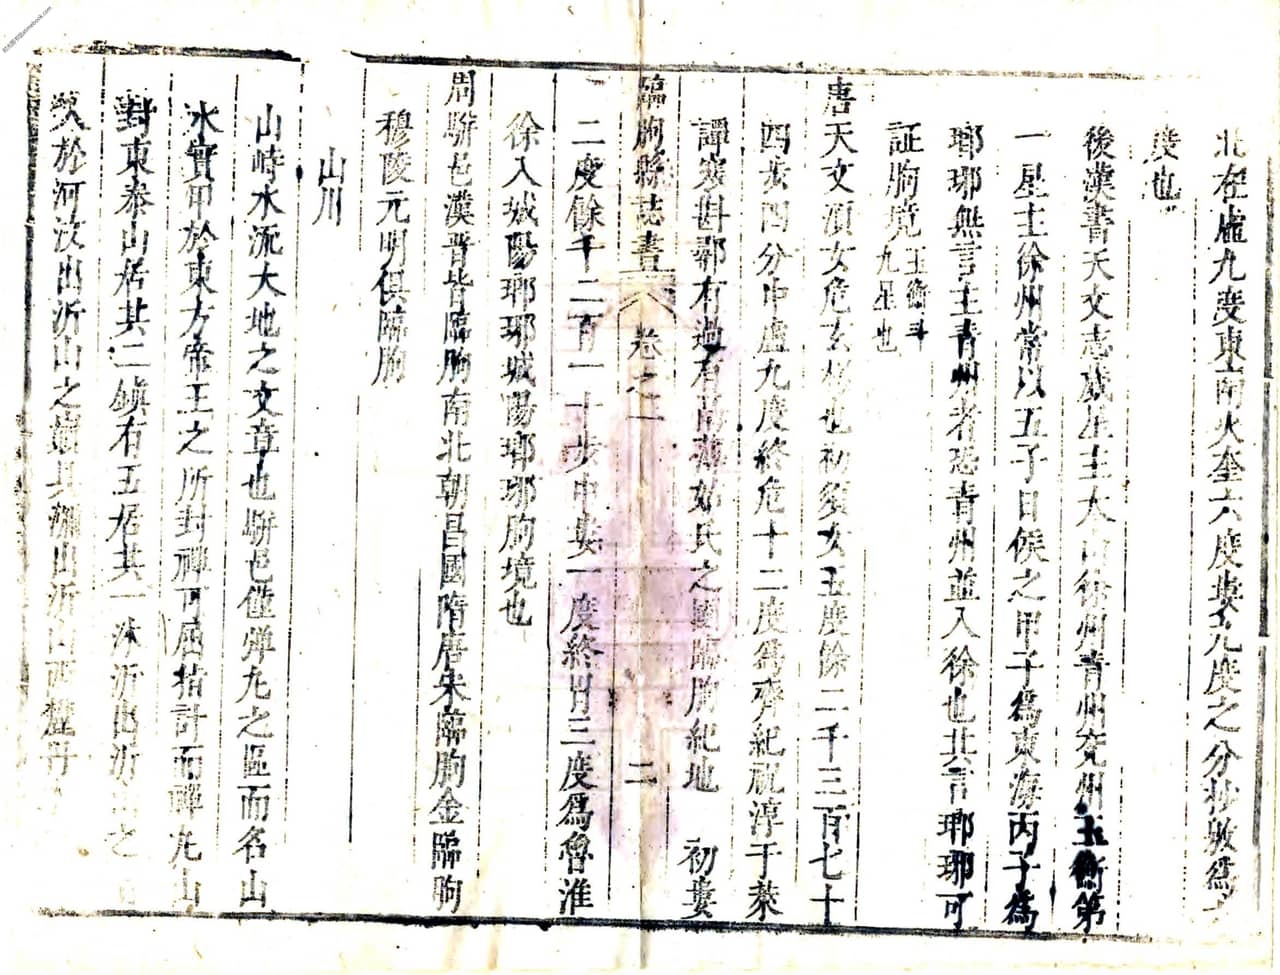 北在虛九度東南火奎六度婁九度之分抄數爲
度也
後漢書天文志歲星主大山徐州青州兗州玉衡第
一星主徐州常以五子日候之甲子爲東海丙子爲
瑯琊無言主青州者恐青州並入徐也其言瑯琊可
証朐境玉衡斗九星也
唐天文湏女危玄枵也初須女五度餘二千三百七十
四步四分中虛九度終危十二度爲齊紀祝淳于萊
譚寒斟鄩有過有鬲蒲姑氏之國臨朐紀地 初婁
臨朐縣誌書 卷之一 二
二度餘千二百一十步中婁一度終胃三度爲魯淮
徐入城陽瑯琊城陽瑯琊朐境也
周駢邑漢晉皆臨朐南北朝昌國隋唐朱臨朐金臨朐
穆陵元明俱臨朐
山川
山峙水流大地之文章也駢邑僅弹丸之區而名山
水實甲於東方帝王之所封禪可屈指計而禪凡山
對東泰山居其二鎮有五居其一沭沂出沂山之
於河汶出沂山之 其瀰出沂山西麓丹